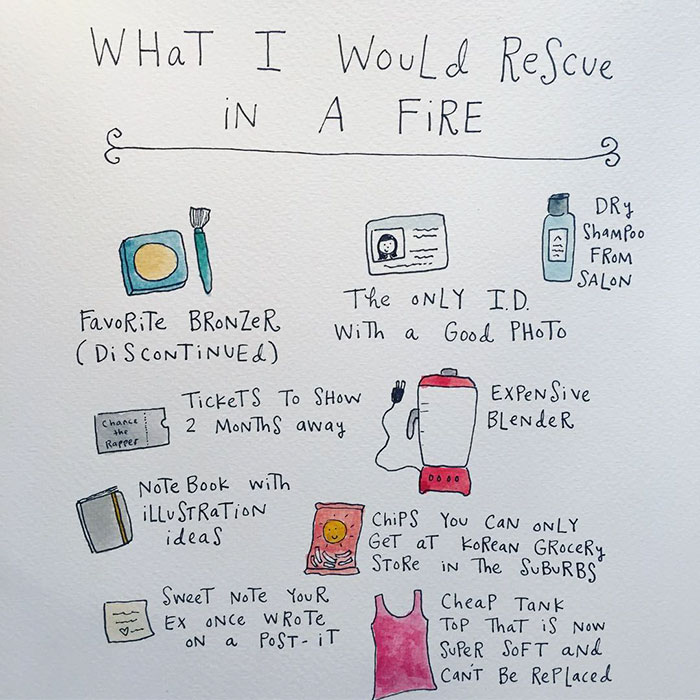 WHaT I WouLd ReScue
iN A FiRE
DRy
Shampoo
FRom
SALoN
FavoRiTe BRoNZeR
(DiScoNTiNUEd)
The oNLY I.D.
WiTh a Good PhoTo
Chance
the
Rapper
TickeTS To SHow
2 MoNThS away
ExpeNSive
BLeNdeR
NoTe Book wiTh
iLLuSTRaTioN
ideaS
ChipS You CaN oNLy
GeT aT KoReaN GRoceRy
SToRe iN The SuBuRBS
SweeT NoTe YouR
Ex oNce WRoTe
oN a PoST-iT
Cheap TaNk
Top ThaT iS Now
SupeR SoFT aNd
CaN'T Be RePLaced